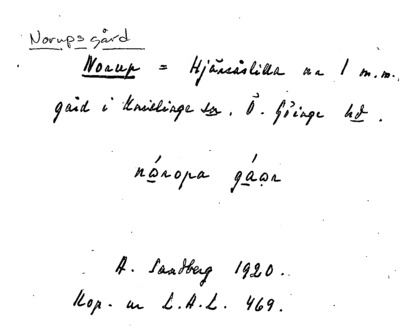 Norups gård
Norup = Hjärsåslilla nr 1 m.m.
gård i Knislinge sn, Ö. Göinge hd.
náropa gáar
A. Sandberg 1920.
Kop. ur L.A.L. 469.